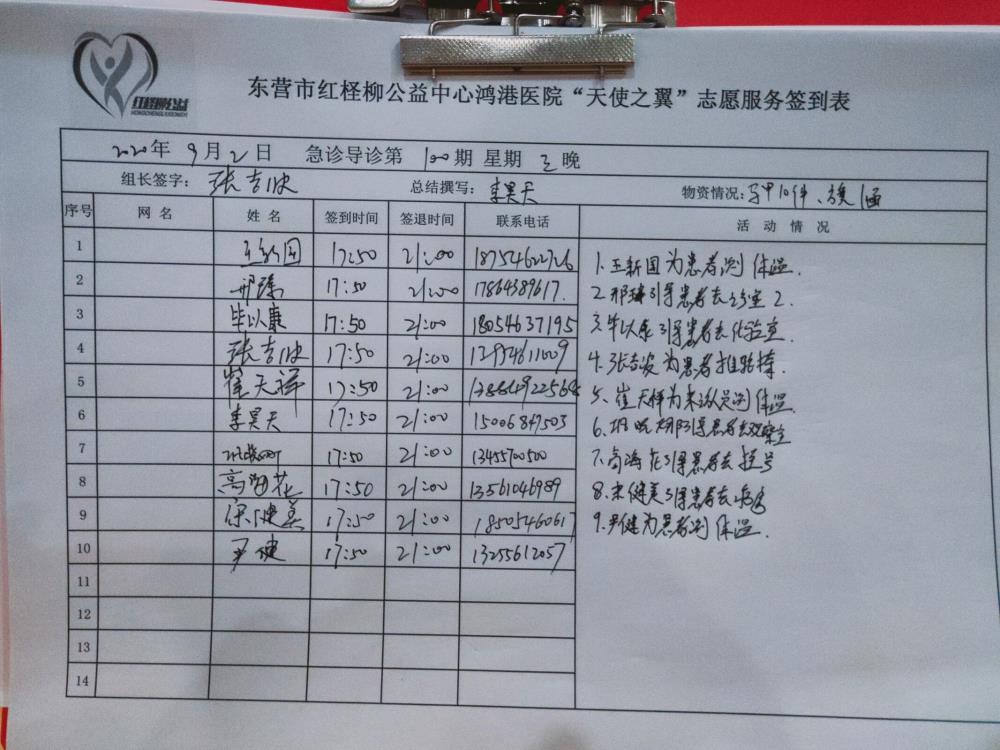 红柽柳公益
东营市红柽柳公益中心鸿港医院“天使之翼”志愿服务签到表
2020年 9月 2日 急诊导诊第 100期 星期 三晚
组长签字: 张吉波 总结撰写: 李昊天 物资情况: 马甲10件、旗1面
序号 网名 姓名 签到时间 签退时间 联系电话 活动情况
1 王新国 17:50 21:00 18754622726
2 邢臻 17:50 21:00 17864389617.
3 毕以康 17:50 21:00 18054637195
4 张吉波 17:50 21:00
5 崔天祥 17:50 21:00
6 李昊天 17:50 21:00 15006847503
7 17:50 21:00 1345570500
8 高海花 17:50 21:00 13561046989
9 宋健美 17:50 21:00 18505460617
10 尹健 17:50 21:00 13255612057
11
12
13
14
1.王新国为患者测体温.
2.邢臻引导患者去诊室2.
3.毕以康引导患者去化验室.
4.张吉波为患者推轮椅.
5.崔天祥为来访人员测体温.
6.引导患者去观察室
7.高海花引导患者去挂号
8.宋健美引导患者去
9.尹健为患者测体温.